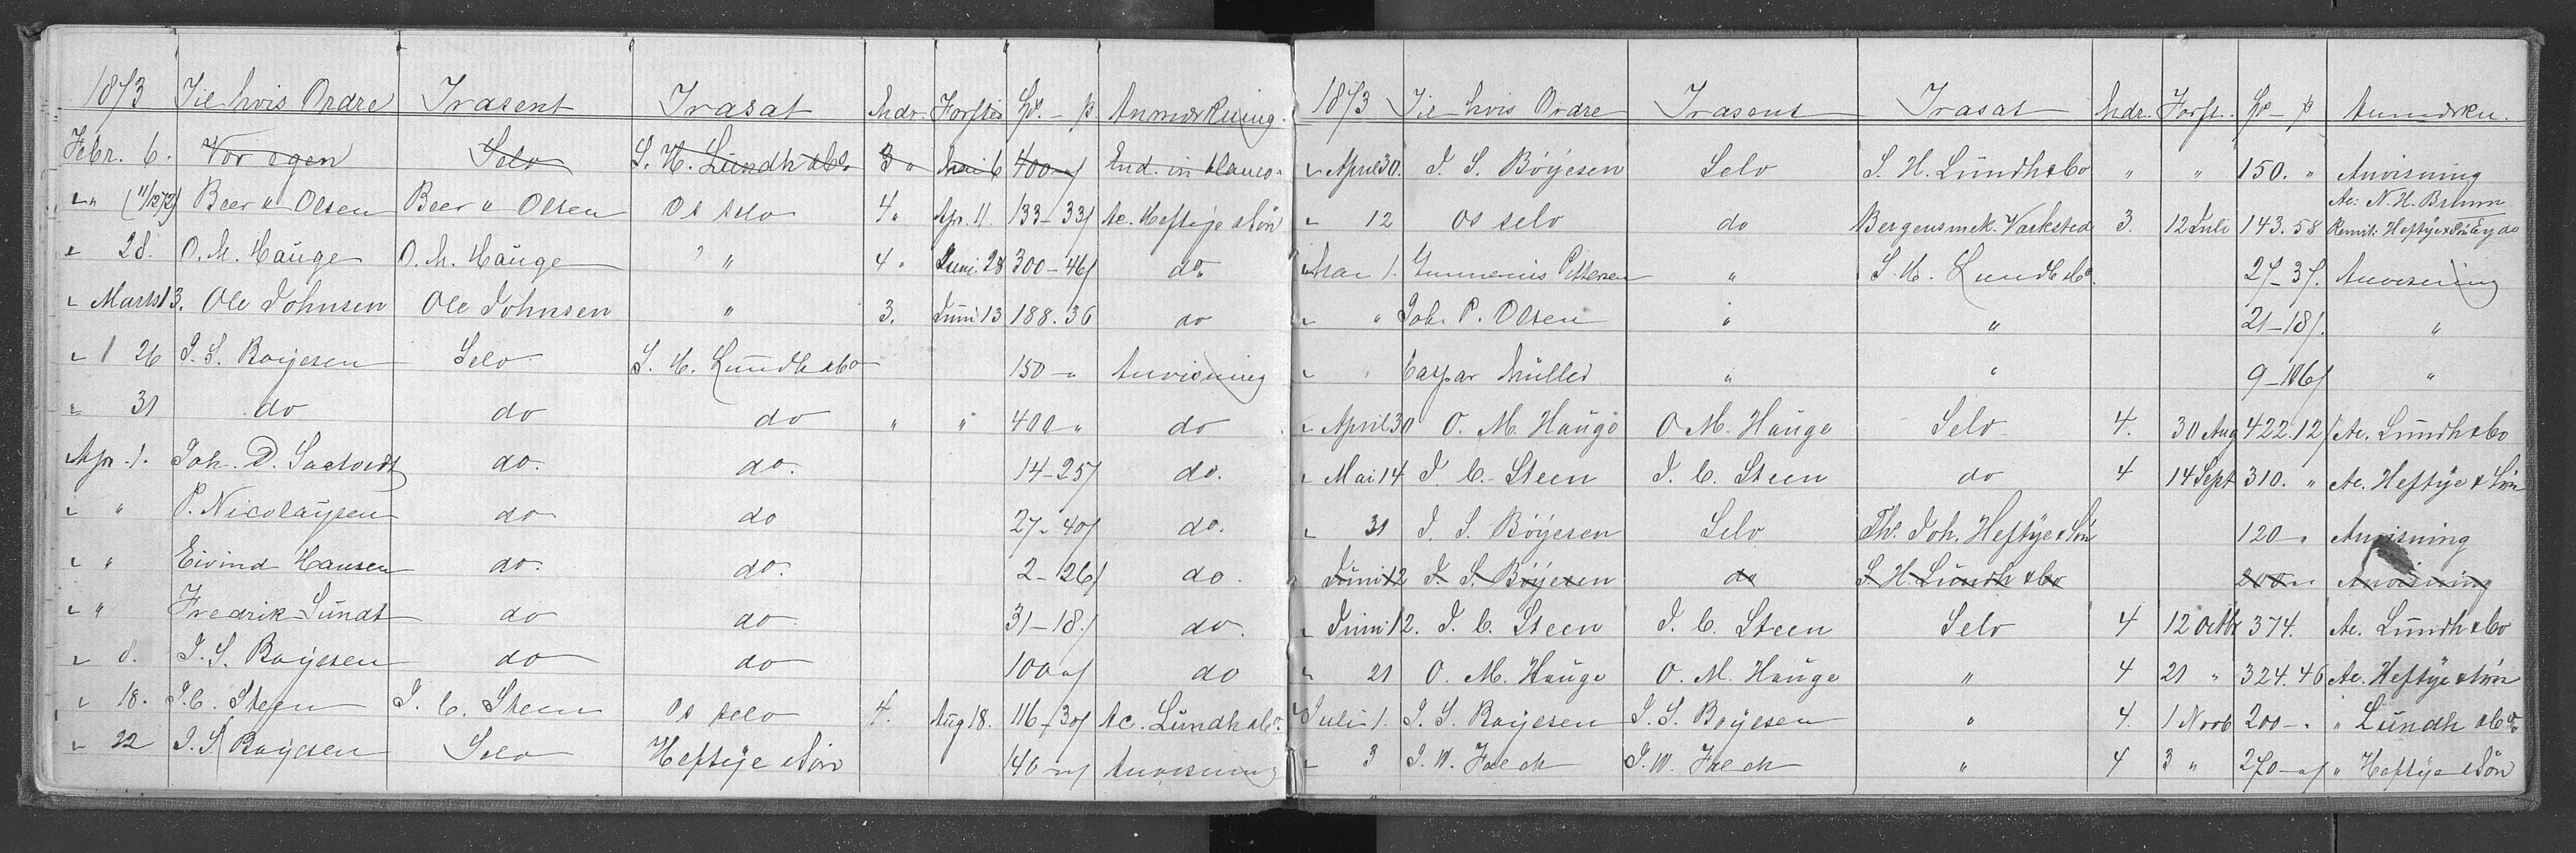 1873 Til hvis Ordre Trasent Trasat Mdr. Forftid Sp. - ß Anmærkning.
Febr. 6. Vor egen Selv S. H. Lundh & Co 3 " Mai 6 400 - " End. in blanco.
" " (11/12 72) Beer & Olsen Beer & Olsen Os selv 4 " Apr. 11. 133 - 33 Ac. Heftye & Søn
" 28. O. M. Hauge O. M. Hauge " " 4 " Juni 28 300 - 46 do.
" Marts 13. Ole Johnsen Ole Johnsen " 3. Juni 13 188. 36 do
" 26 J. S. Boyesen Selv S. H. Lundh & Co 150 - " Anvisning
" 31 do do do " " 400 " do
Apr. 1. Joh. D. do. do. 14 - 25 do.
" " P. Nicolaysen do do 27 - 40 do.
" " Eivind Hansen do. do. 2 - 26 do.
" " Fredrik Sundt do do 31 - 18. do.
" 8. J. S. Boyesen do do 100 " do
" 18. J. C. Steen J. C. Steen Os selv 4. Aug 18. 116 - 30 Ac. Lundh & Co.
" 22 J. S. Boyesen Selv Heftye & Søn 140 - " Anvisning
1873 Til hvis Ordre Trasent Trasat Mdr. Forft. Sp - ß Anmærkn.
" April 30. J. S. Böyesen Selv S. H. Lundh & Co " " 150. " Anvisning
Ac: N. H. Bruun
" 12 os selv do Bergens mek. Værksted 3. 12 Juli 143. 58 Remit: Heftye & Søn
" Mai 1. Gunnerius Pettersen " S. H. Lundh & Co. 27 - 37. Anvisning
" " Joh. P. Olsen " " 21 - 18. "
" Caspar Müller " " 9 - 106 "
" April 30 O. M. Hauge O M. Hauge Selv 4. 30 Aug 422. 12 Ac. Lundh & Co
" Mai 14 J. C. Steen J. C. Steen do 4 14 Sept 310. " Ac. Heftye & Søn
" 31 J. S. Böyesen Selv Th. Joh. Heftye & Søn 120 - " Anvisning
" Juni 12 J. S. Böyesen do S. H. Lundh & Co 200 " Anvisning
" Juni 12. J. C. Steen J. C. Steen Selv 4 12 Octbr 374. Ac. Lundh & Co
" 21 O. M. Hauge O. M. Hauge " 4 21 " 324. 46 Ac. Heftye & Søn
" Juli 1. J. S. Boyesen J. S. Boyesen " 4. 1 Novb 200 - . " Lundh & Co.
" 3 J. W. J. W. " 4 3 " 270 - " " Heftye & Søn